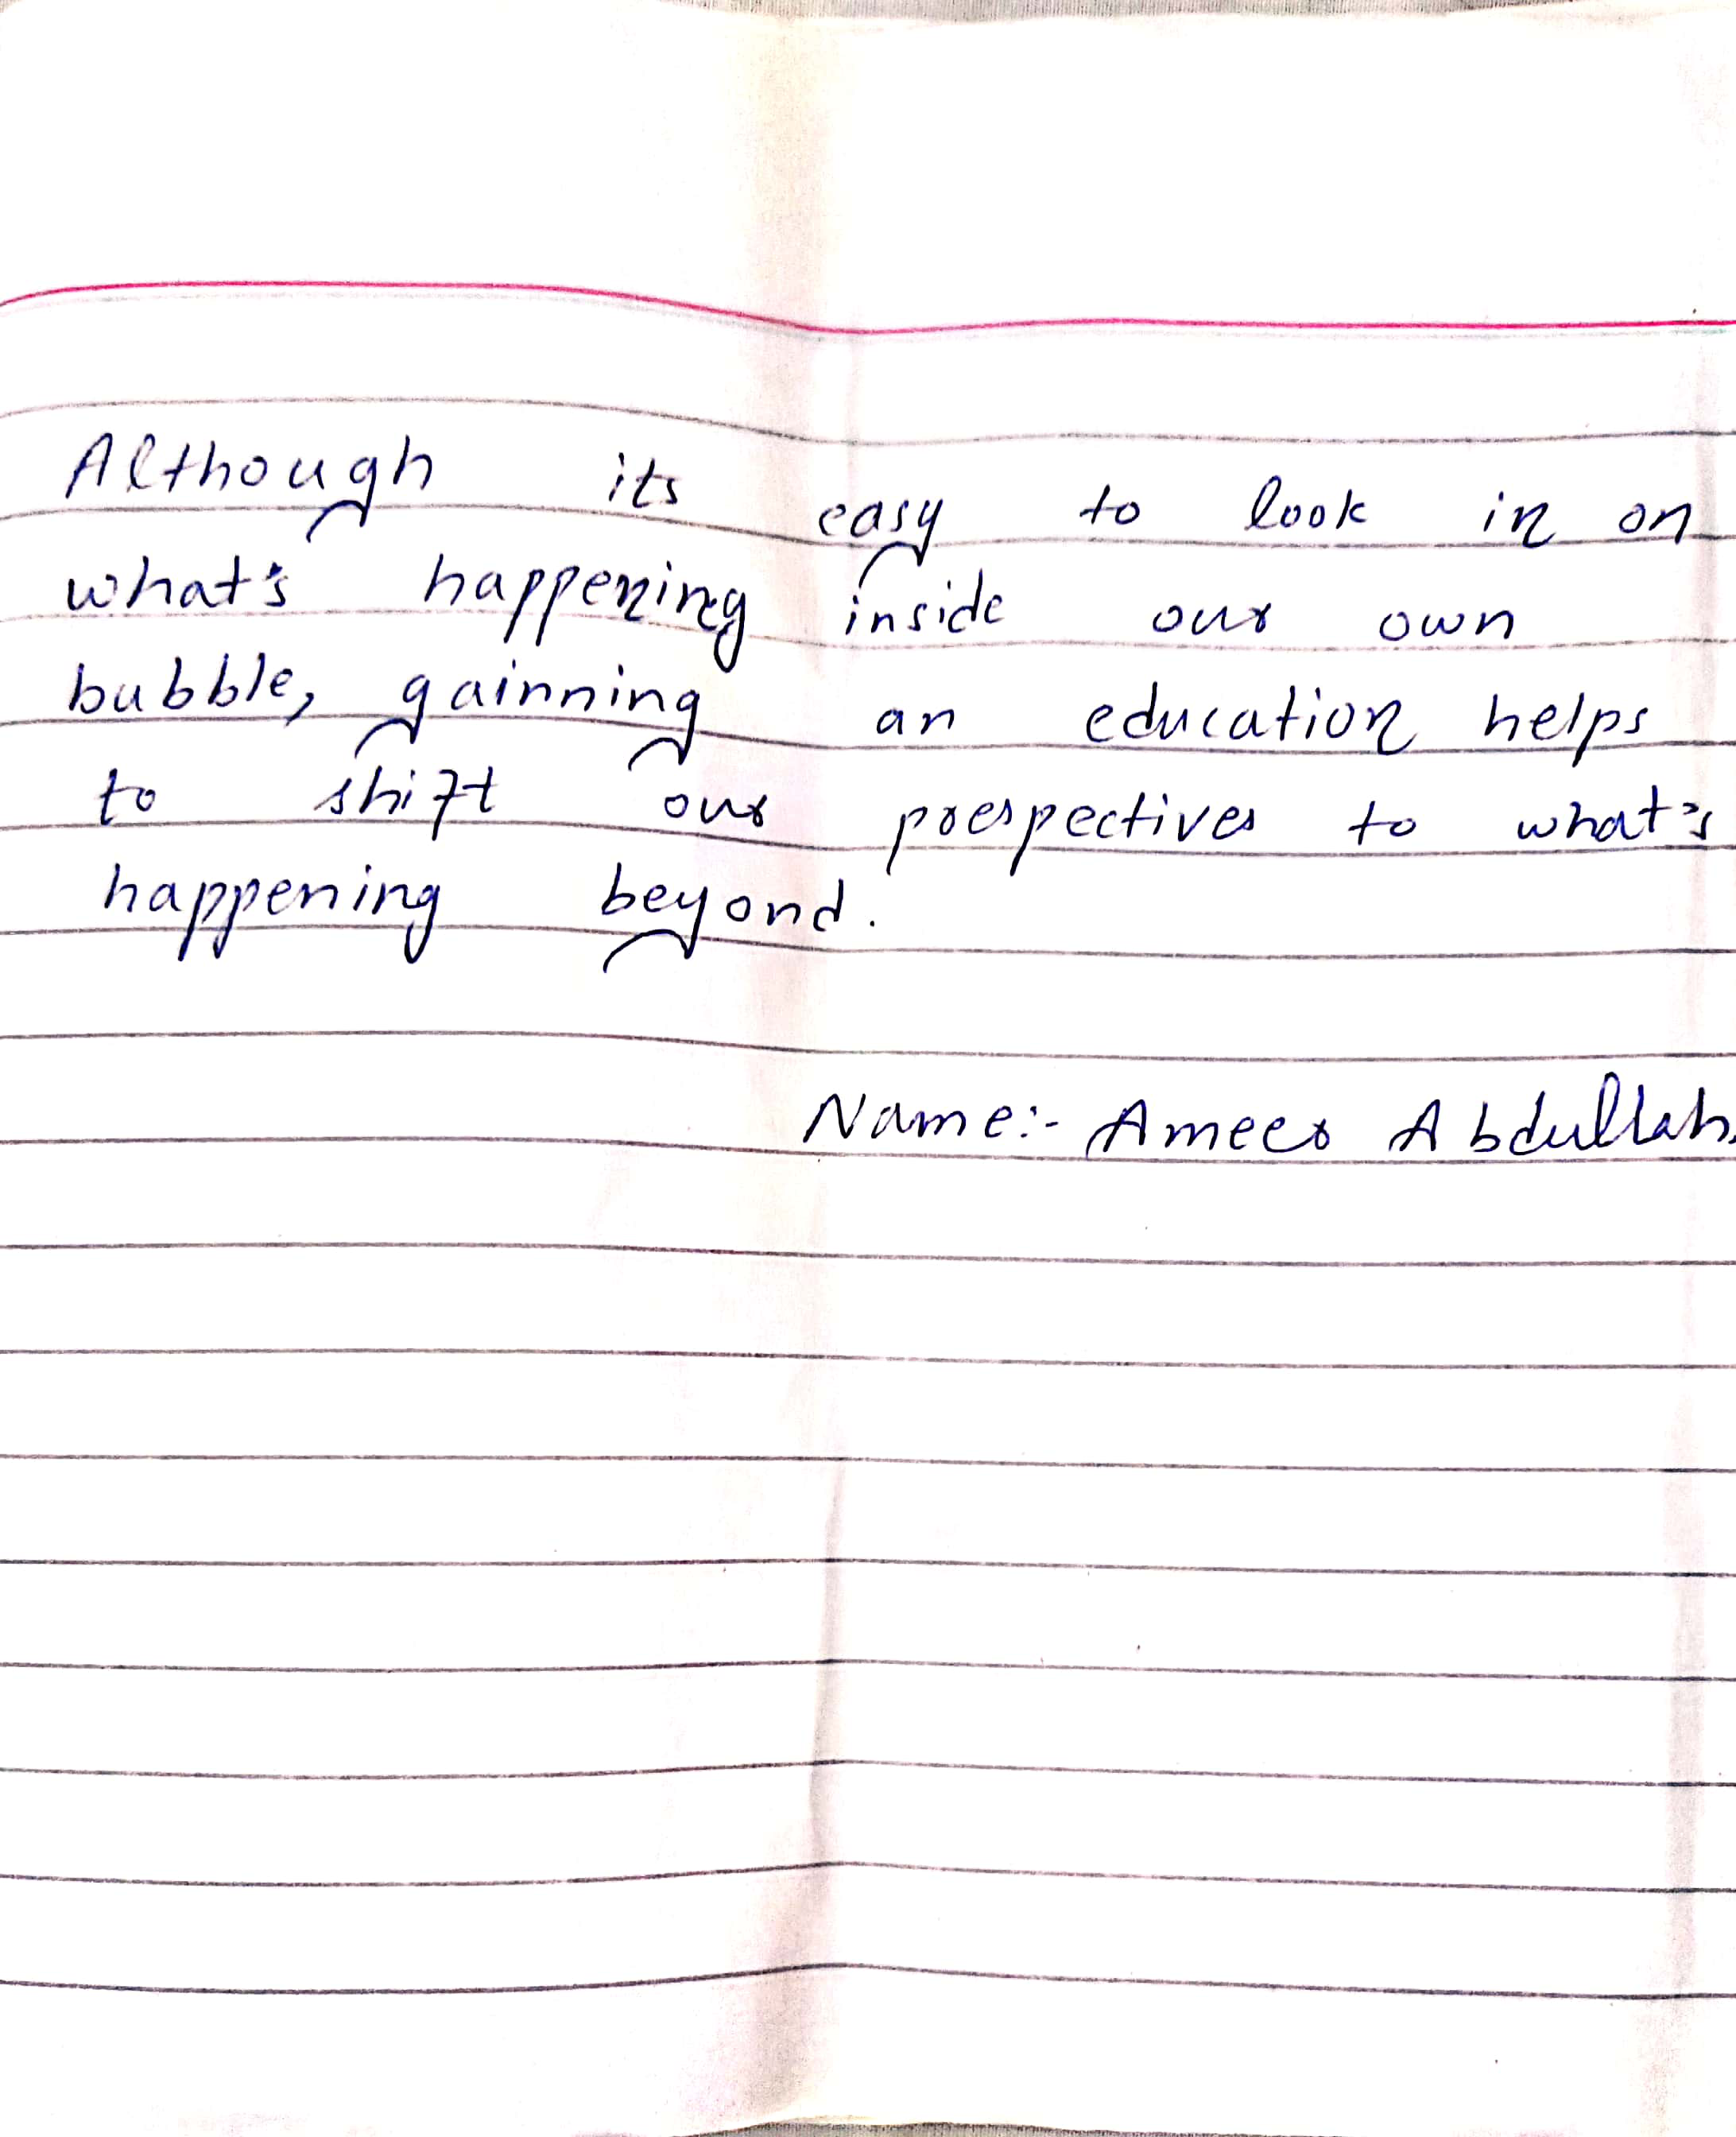 Although its easy to look in on
what's happening inside our own
bubble, gainning an education helps
to shift our prespectives to what's
happening beyond.
Name:- Ameer Abdullah